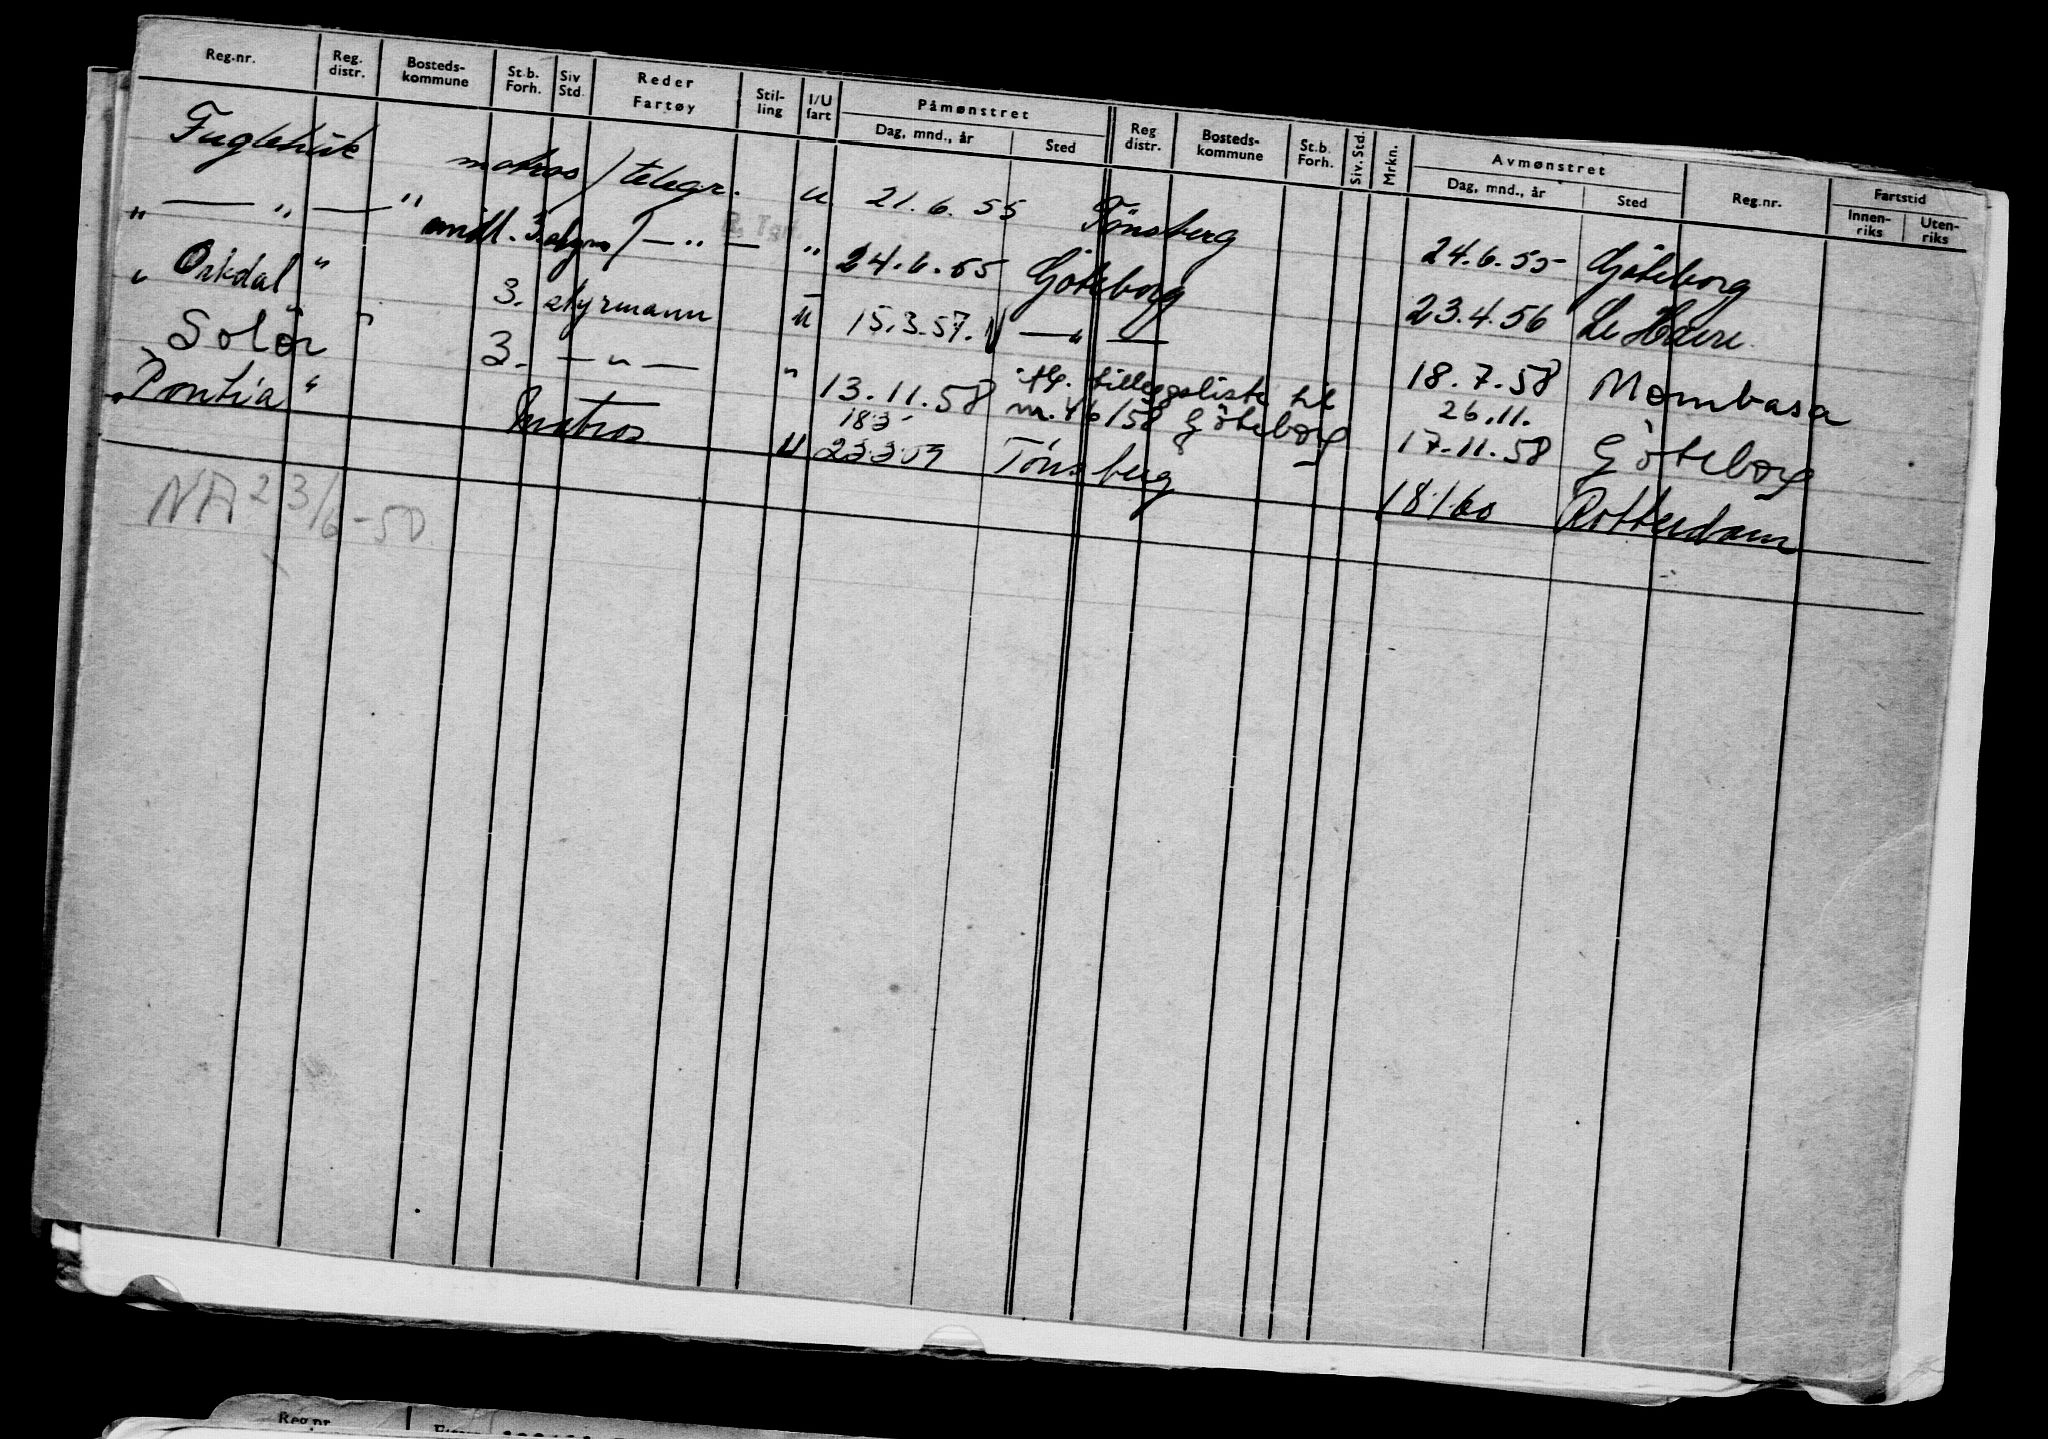 Reg.nr. Reg. distr. Bosteds- kommune St.b. Forh. Siv Std. Reder Fartøy Stil- ling I/U fart Påmønstret Dag, mnd., år Sted Reg distr. Bosteds- kommune St.b. Forh. Siv. Std. Mrkn. Avmønstret Dag, mnd., år Sted Reg.nr. Fartstid Innen- riks Uten- riks
matros / telegr. u 21.6.55 Tönsberg 24.6.55 Göteborg
" — " — " midl. 3. styrm / — " — " 24.6.55 Göteborg 23.4.56 Le Havre
" Orkdal " 3. styrmann U 15.3.57. — " — 18.7.58 Mombasa
Solör " 3. — " — " 13.11.58 tilleggsliste til nr. 46/58 Göteborg 26.11. 17.11.58 Göteborg
"Pontia" matros U 23.3.59 183 Tönsberg 18/1 60 Rotterdam
NA 23/6-50
Reg.nr.